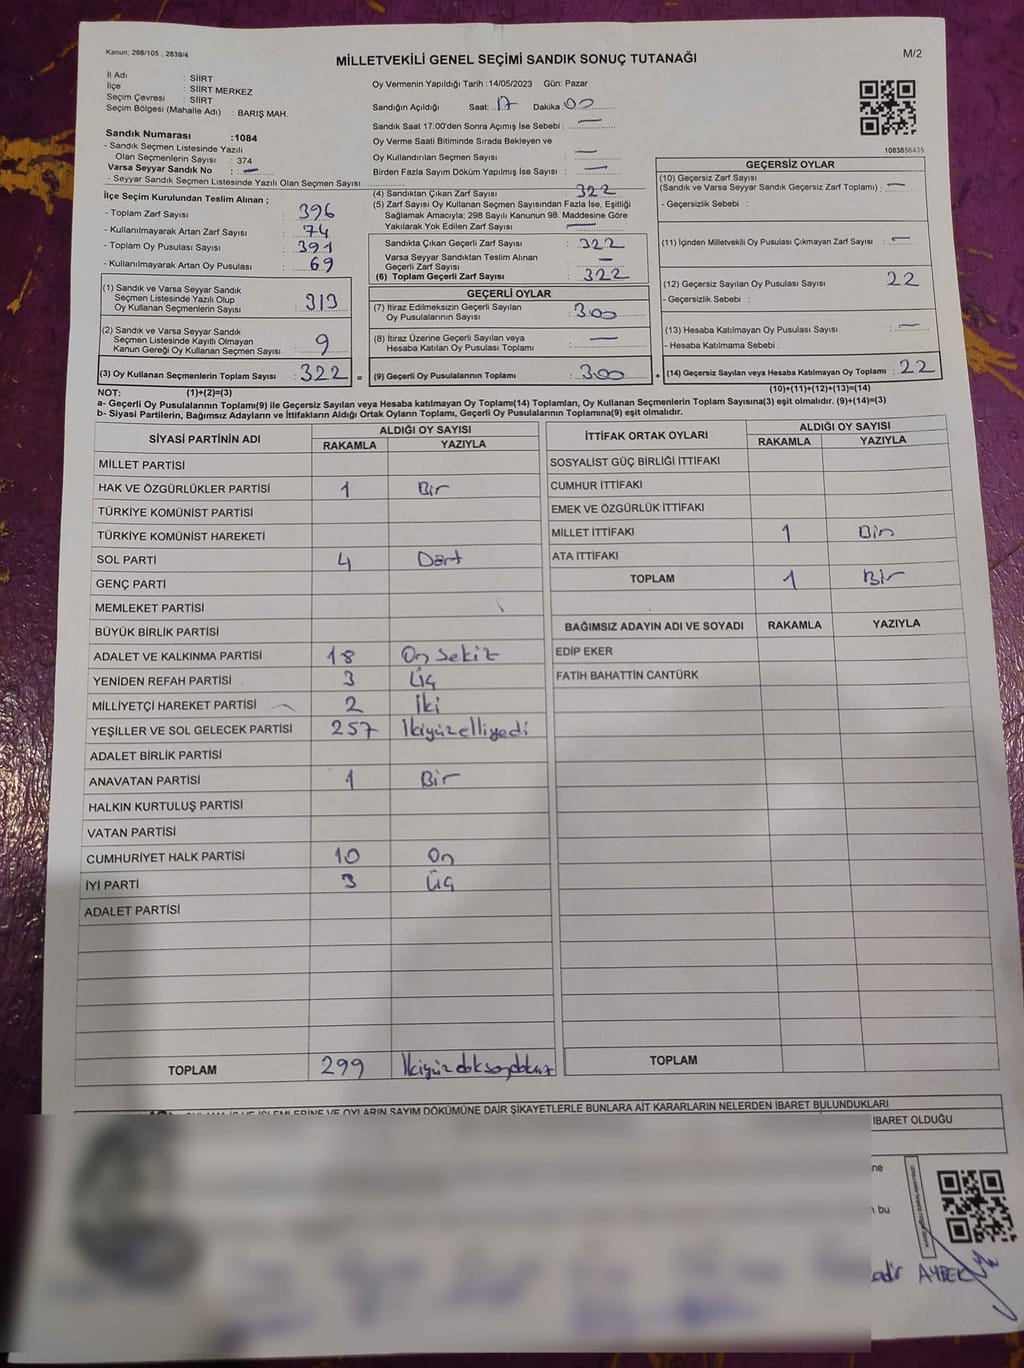 Kanun: 298/105 , 2839/4
MİLLETVEKİLİ GENEL SEÇİMİ SANDIK SONUÇ TUTANAĞI
M/2
İl Adı : SİİRT
İlçe : SİİRT MERKEZ
Seçim Çevresi : SİİRT
Seçim Bölgesi (Mahalle Adı) : BARIŞ MAH.
Sandık Numarası :1084
- Sandık Seçmen Listesinde Yazılı
Olan Seçmenlerin Sayısı : 374
Varsa Seyyar Sandık No : —
- Seyyar Sandık Seçmen Listesinde Yazılı Olan Seçmen Sayısı:
İlçe Seçim Kurulundan Teslim Alınan ;
- Toplam Zarf Sayısı : 396
- Kullanılmayarak Artan Zarf Sayısı : 74
- Toplam Oy Pusulası Sayısı : 391
- Kullanılmayarak Artan Oy Pusulası : 69
(1) Sandık ve Varsa Seyyar Sandık
Seçmen Listesinde Yazılı Olup
Oy Kullanan Seçmenlerin Sayısı : 313
(2) Sandık ve Varsa Seyyar Sandık
Seçmen Listesinde Kayıtlı Olmayan
Kanun Gereği Oy Kullanan Seçmen Sayısı : 9
(3) Oy Kullanan Seçmenlerin Toplam Sayısı : 322 =
Oy Vermenin Yapıldığı Tarih :14/05/2023 Gün: Pazar
Sandığın Açıldığı Saat: 17 Dakika :00
Sandık Saat 17:00'den Sonra Açımış İse Sebebi : —
Oy Verme Saati Bitiminde Sırada Bekleyen ve
Oy Kullandırılan Seçmen Sayısı : —
Birden Fazla Sayım Döküm Yapılmış İse Sayısı : —
(4) Sandıktan Çıkan Zarf Sayısı : 322
(5) Zarf Sayısı Oy Kullanan Seçmen Sayısından Fazla İse, Eşitliği
Sağlamak Amacıyla; 298 Sayılı Kanunun 98. Maddesine Göre
Yakılarak Yok Edilen Zarf Sayısı : —
Sandıkta Çıkan Geçerli Zarf Sayısı : 322
Varsa Seyyar Sandıktan Teslim Alınan
Geçerli Zarf Sayısı : —
(6) Toplam Geçerli Zarf Sayısı : 322
GEÇERLİ OYLAR
(7) İtiraz Edilmeksizin Geçerli Sayılan
Oy Pusulalarının Sayısı : 300
(8) İtiraz Üzerine Geçerli Sayılan veya
Hesaba Katılan Oy Pusulası Toplamı : —
(9) Geçerli Oy Pusulalarının Toplamı : 300 +
1083856435
GEÇERSİZ OYLAR
(10) Geçersiz Zarf Sayısı
(Sandık ve Varsa Seyyar Sandık Geçersiz Zarf Toplamı) : —
- Geçersizlik Sebebi :
(11) İçinden Milletvekili Oy Pusulası Çıkmayan Zarf Sayısı : —
(12) Geçersiz Sayılan Oy Pusulası Sayısı : 22
- Geçersizlik Sebebi :
(13) Hesaba Katılmayan Oy Pusulası Sayısı : —
- Hesaba Katılmama Sebebi :
(14) Geçersiz Sayılan veya Hesaba Katılmayan Oy Toplamı : 22
NOT: (1)+(2)=(3) (10)+(11)+(12)+(13)=(14)
a- Geçerli Oy Pusulalarının Toplamı(9) ile Geçersiz Sayılan veya Hesaba Katılmayan Oy Toplamı(14) Toplamları, Oy Kullanan Seçmenlerin Toplam Sayısına(3) eşit olmalıdır. (9)+(14)=(3)
b- Siyasi Partilerin, Bağımsız Adayların ve İttifakların Aldığı Ortak Oyların Toplamı, Geçerli Oy Pusulalarının Toplamına(9) eşit olmalıdır.
SİYASİ PARTİNİN ADI ALDIĞI OY SAYISI
RAKAMLA YAZIYLA
MİLLET PARTİSİ
HAK VE ÖZGÜRLÜKLER PARTİSİ 1 Bir
TÜRKİYE KOMÜNİST PARTİSİ
TÜRKİYE KOMÜNİST HAREKETİ
SOL PARTİ 4 Dört
GENÇ PARTİ
MEMLEKET PARTİSİ
BÜYÜK BİRLİK PARTİSİ
ADALET VE KALKINMA PARTİSİ 18 On Sekiz
YENİDEN REFAH PARTİSİ 3 Üç
MİLLİYETÇİ HAREKET PARTİSİ 2 İki
YEŞİLLER VE SOL GELECEK PARTİSİ 257 İkiyüzelliyedi
ADALET BİRLİK PARTİSİ
ANAVATAN PARTİSİ 1 Bir
HALKIN KURTULUŞ PARTİSİ
VATAN PARTİSİ
CUMHURİYET HALK PARTİSİ 10 On
İYİ PARTİ 3 Üç
ADALET PARTİSİ
TOPLAM 299 İkiyüzdoksandokuz
İTTİFAK ORTAK OYLARI ALDIĞI OY SAYISI
RAKAMLA YAZIYLA
SOSYALİST GÜÇ BİRLİĞİ İTTİFAKI
CUMHUR İTTİFAKI
EMEK VE ÖZGÜRLÜK İTTİFAKI
MİLLET İTTİFAKI 1 Bir
ATA İTTİFAKI
TOPLAM 1 Bir
BAĞIMSIZ ADAYIN ADI VE SOYADI RAKAMLA YAZIYLA
EDİP EKER
FATİH BAHATTİN CANTÜRK
TOPLAM
VE OYLARIN SAYIM DÖKÜMÜNE DAİR ŞİKAYETLERLE BUNLARA AİT KARARLARIN NELERDEN İBARET BULUNDUKLARI
İBARET OLDUĞU
ne
n bu
adir AYBEK